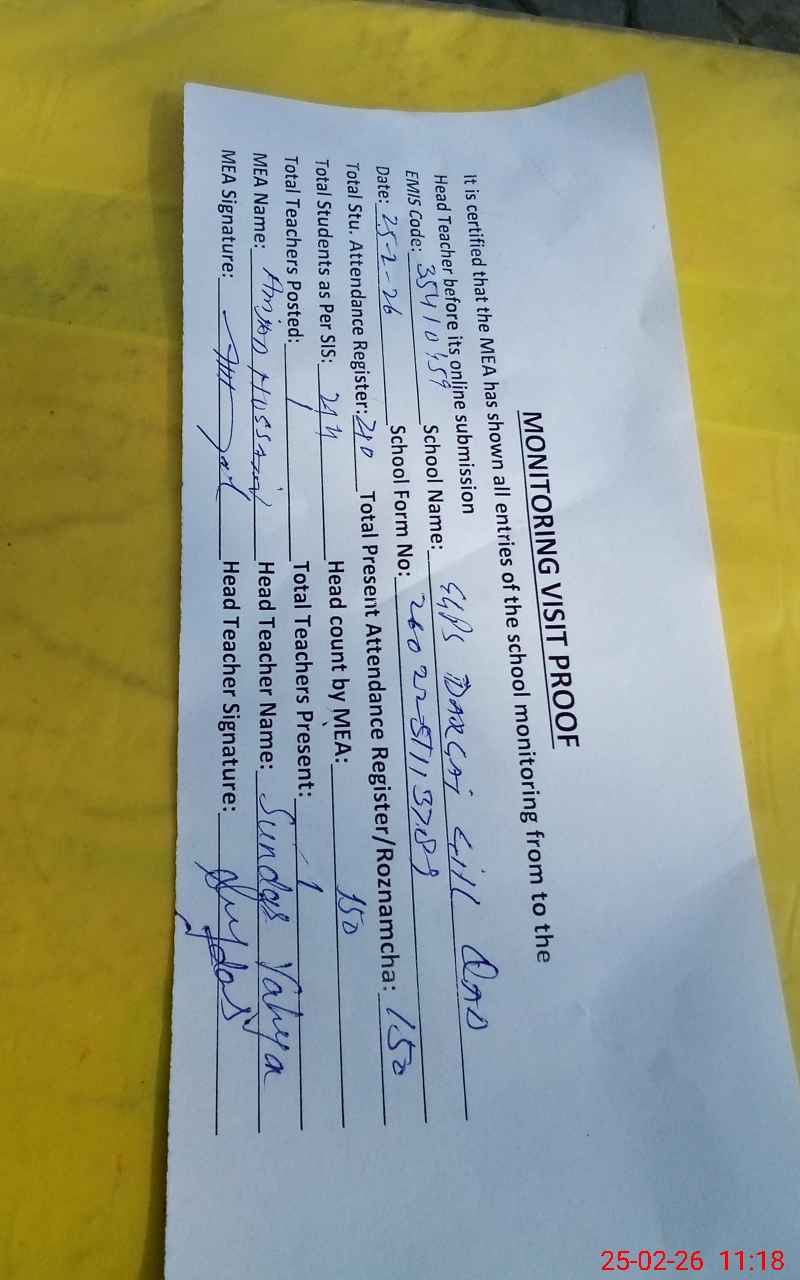 MONITORING VISIT PROOF
It is certified that the MEA has shown all entries of the school monitoring from to the
Head Teacher before its online submission
EMIS Code: 35410159 School Name: GGPS
Date: 25-2-26 School Form No:
Total Stu. Attendance Register: 240 Total Present Attendance Register/Roznamcha: 150
Total Students as Per SIS: 244 Head count by MEA: 150
Total Teachers Posted: 1 Total Teachers Present: 1
MEA Name: Amjad Hussain Head Teacher Name: Sundas Yahya
MEA Signature: Head Teacher Signature: Sundas
25-02-26 11:18